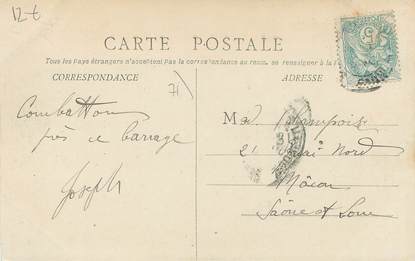 12 €
CARTE POSTALE
Tous les Pays étrangers n'acceptent Pas la correspondance au recto, se renseigner à la
CORRESPONDANCE
ADRESSE
71
Combattons
près ce barrage
Joseph
M
21 Quai Nord
Mâcon
Saône et Loire
5